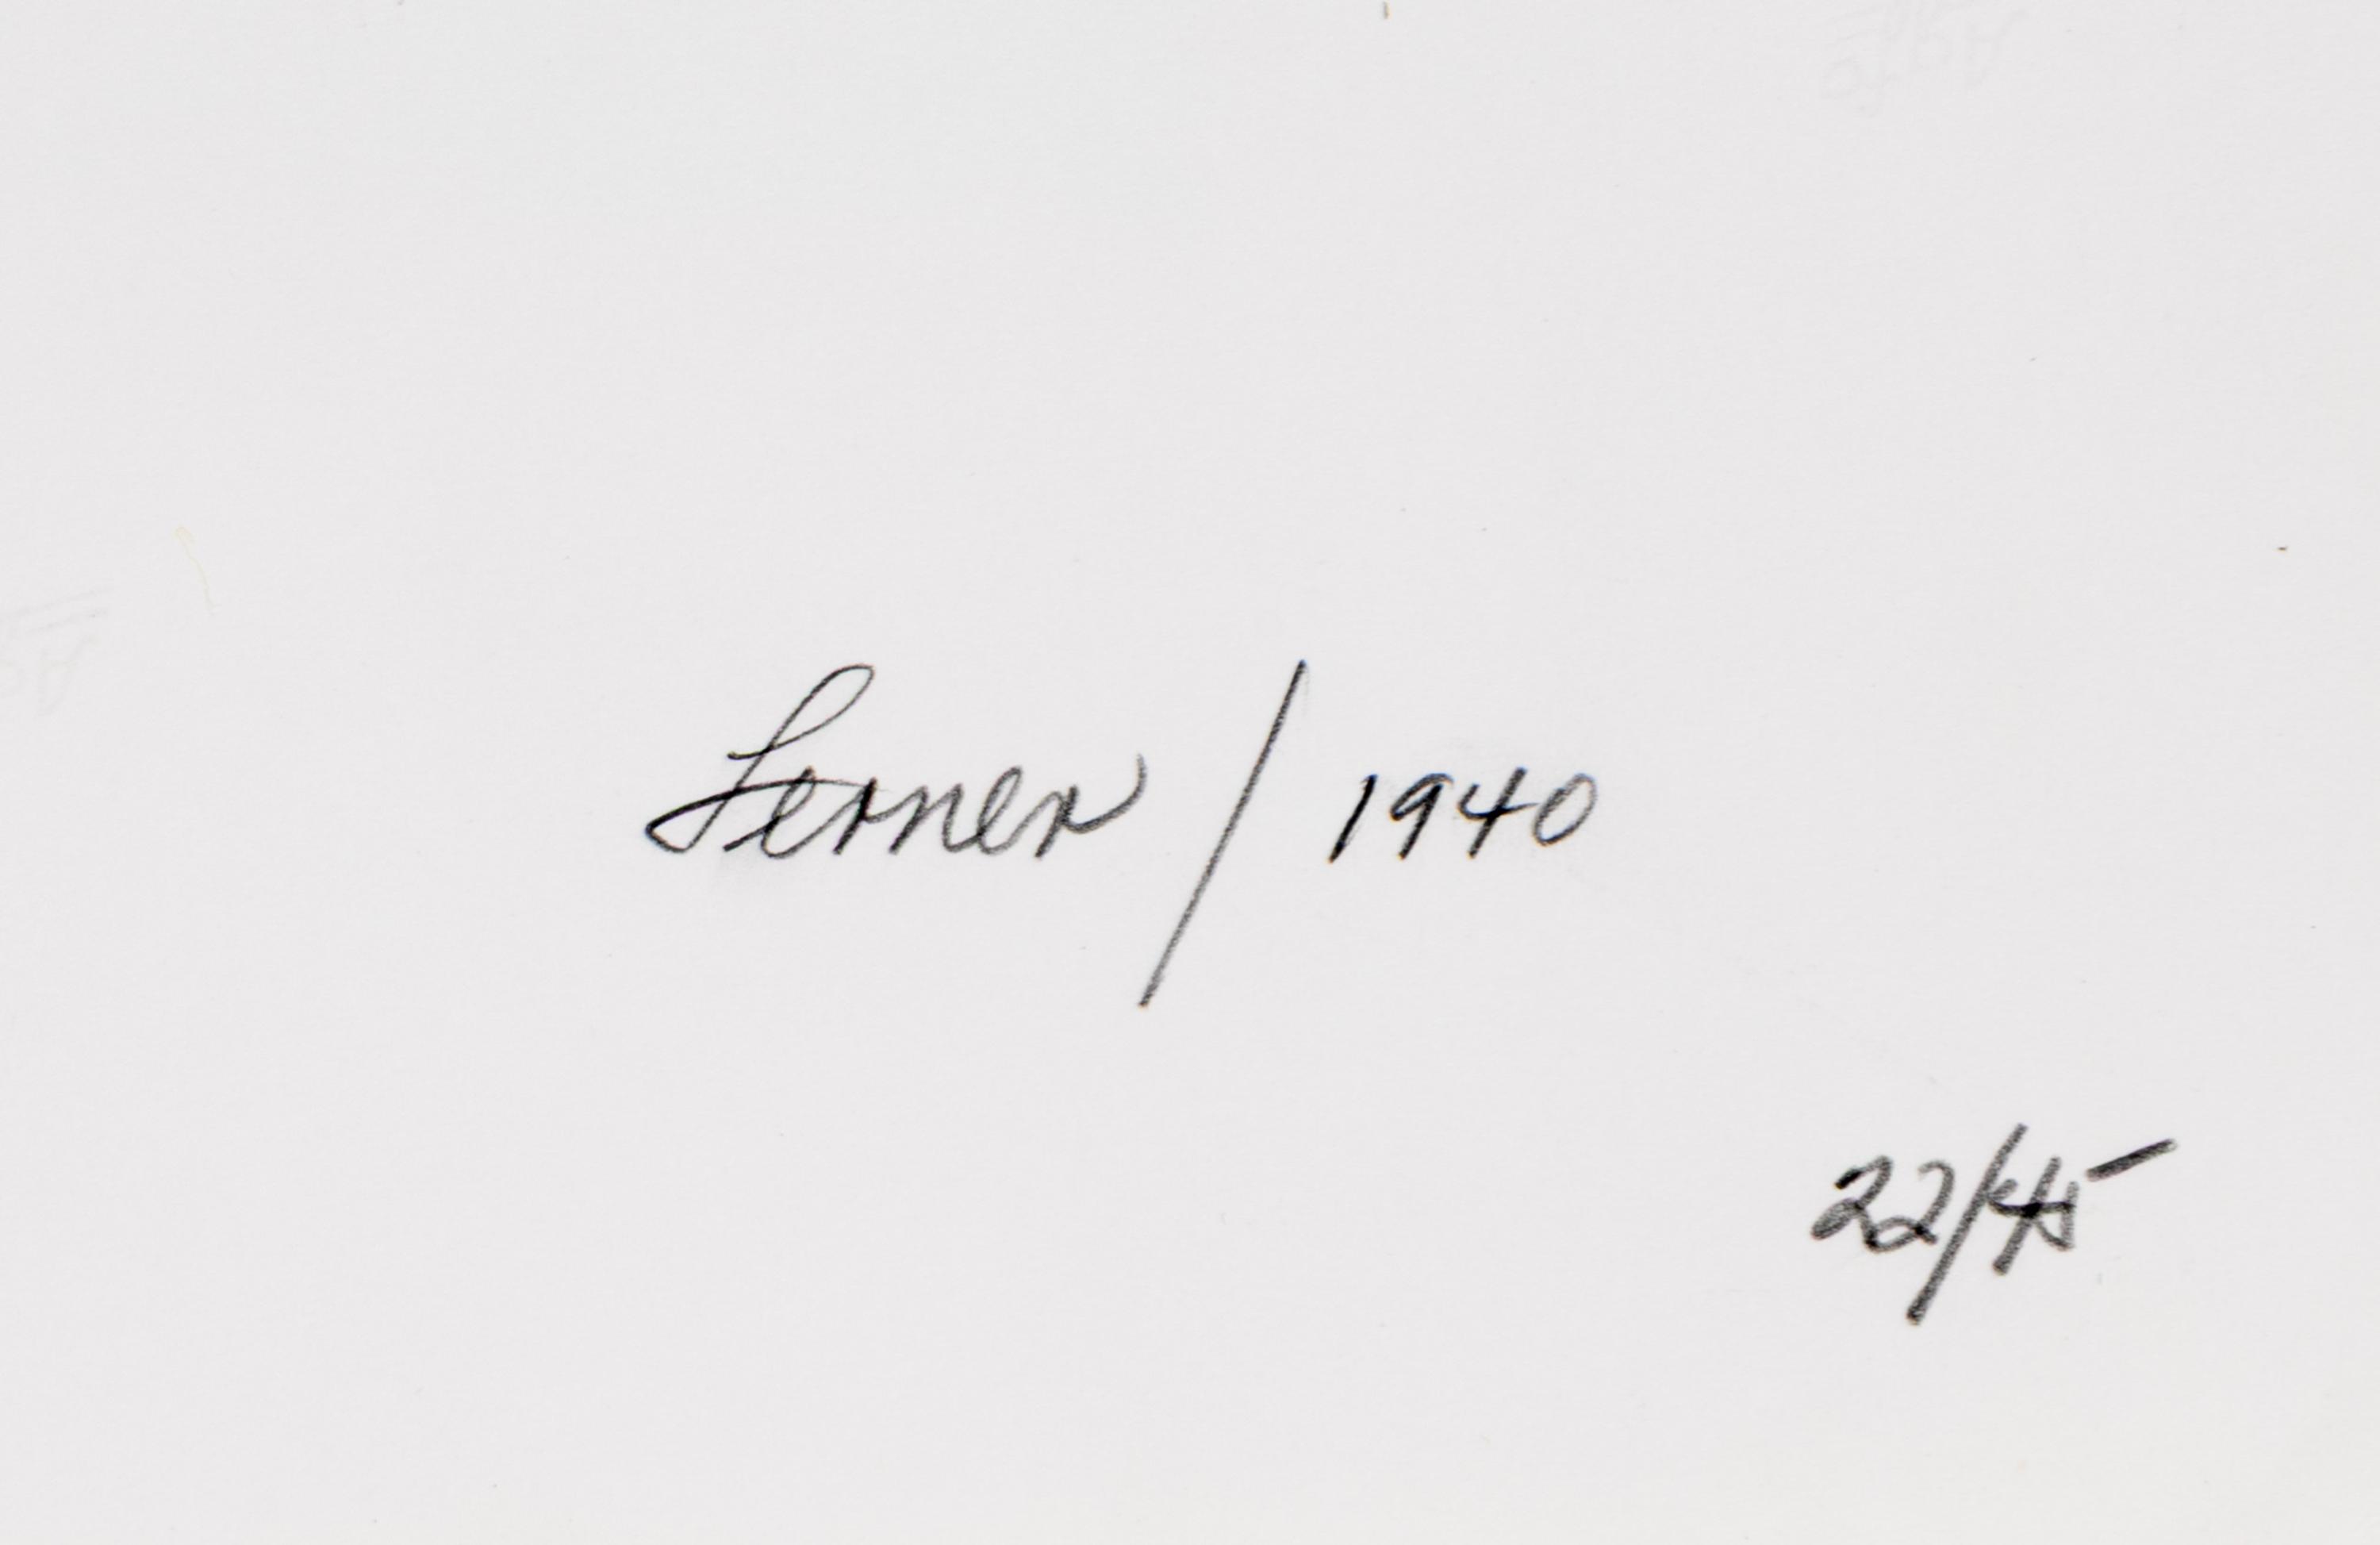 Lerner / 1940
22/45